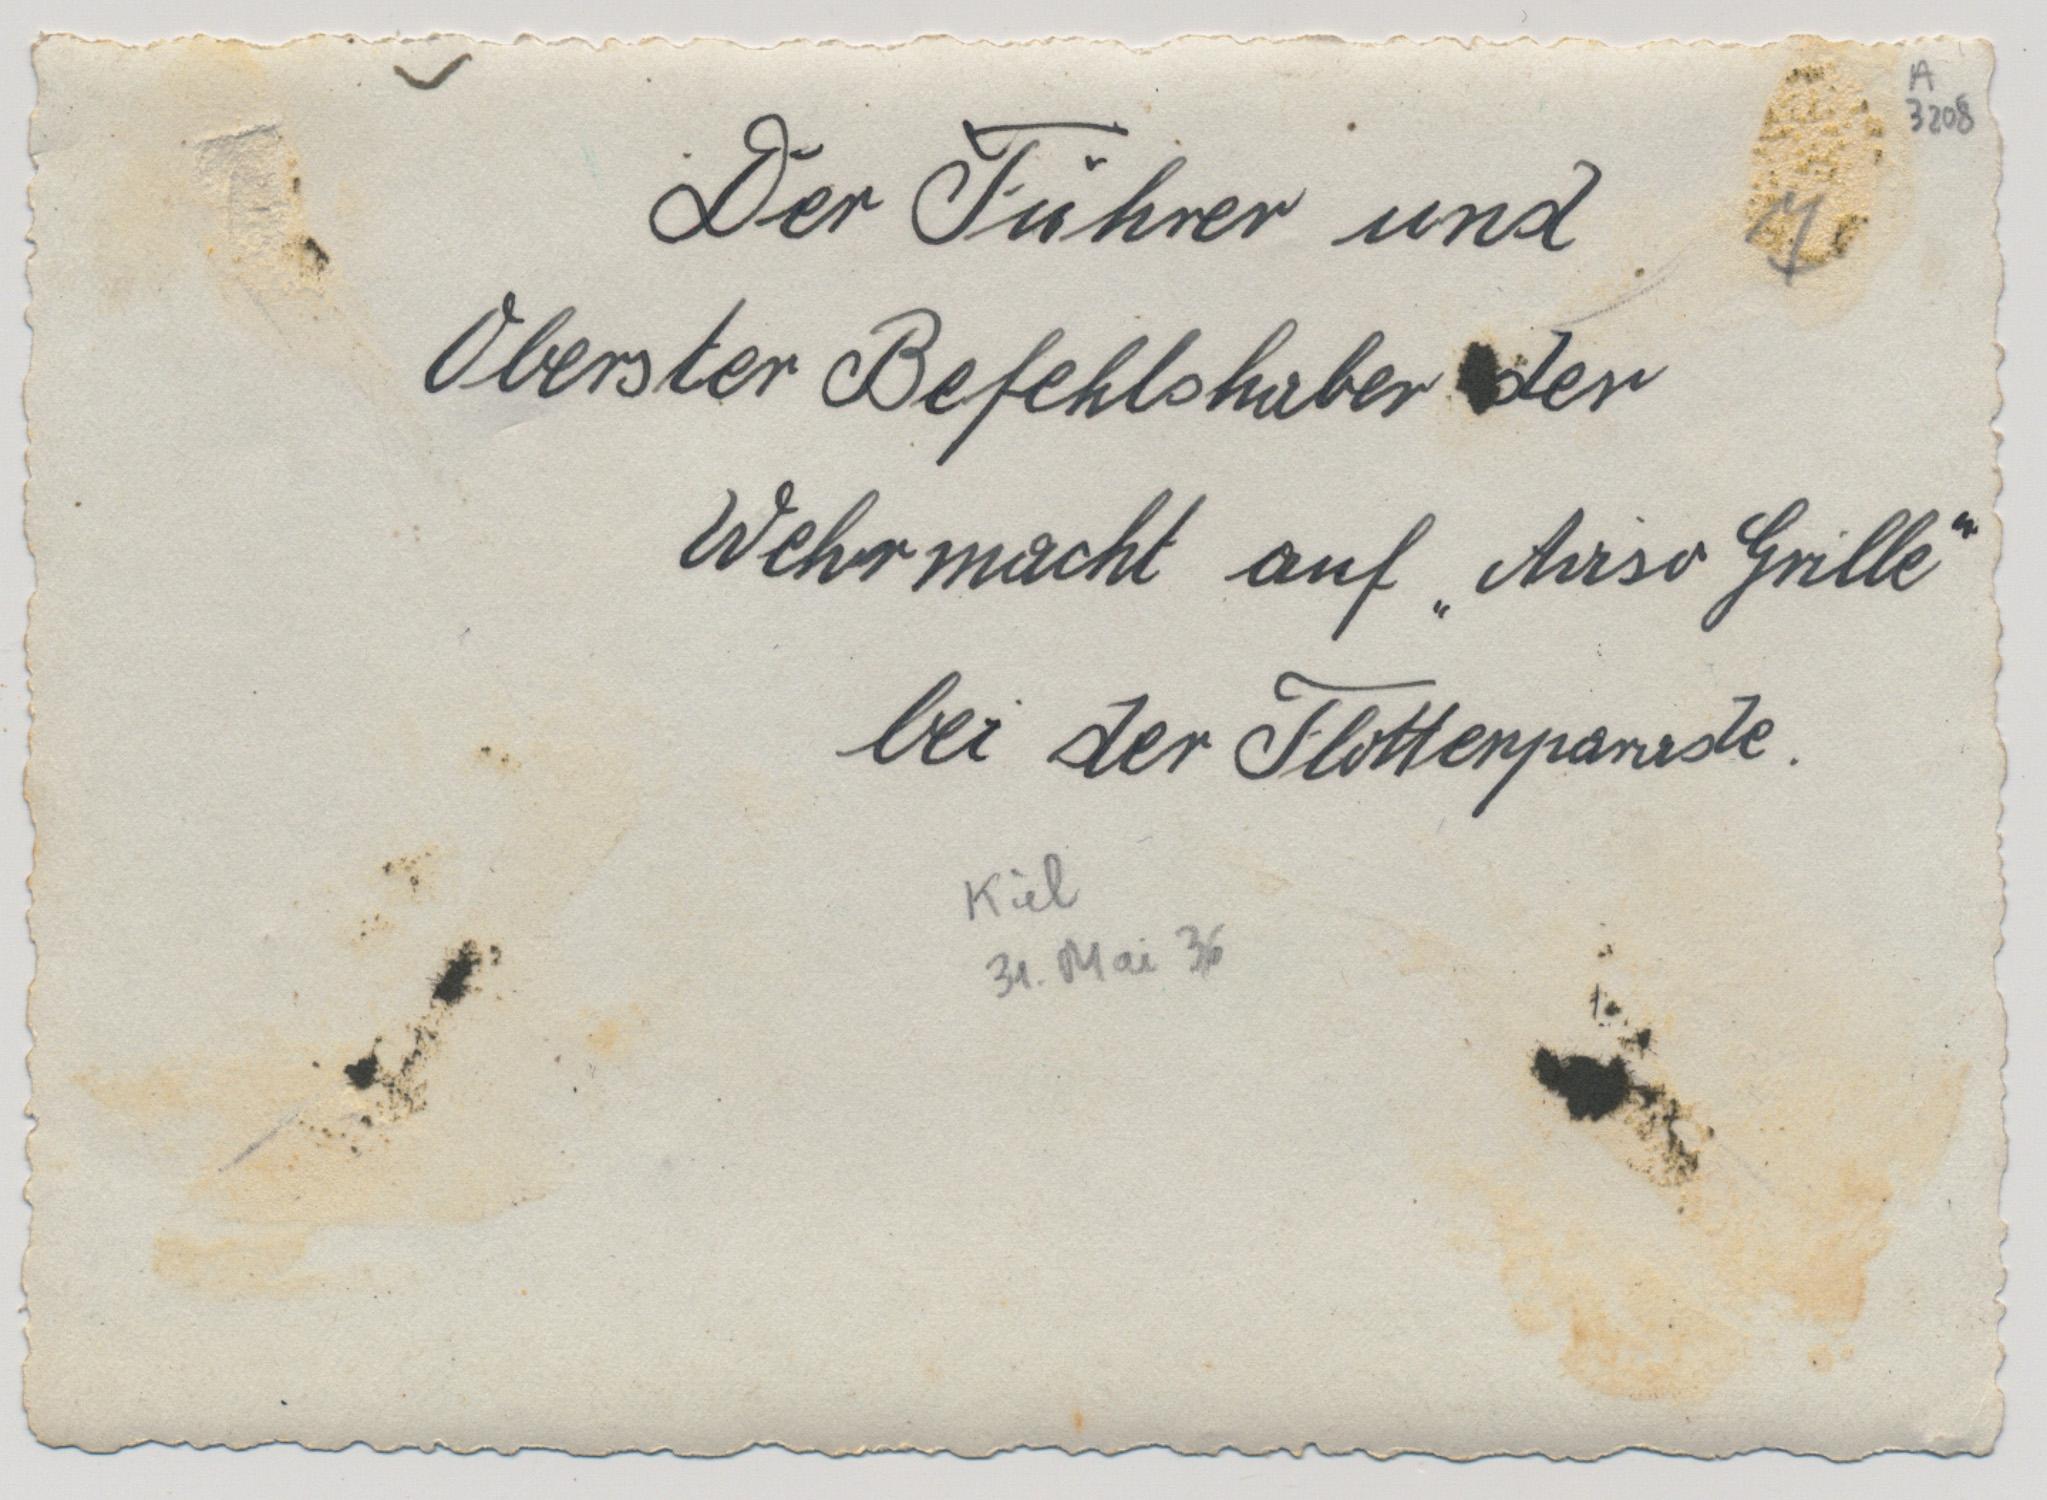 A
3208
Der Führer und
Oberster Befehlshaber der
Wehrmacht auf „Aviso Grille“
bei der Flottenparade.
Kiel
31. Mai 36